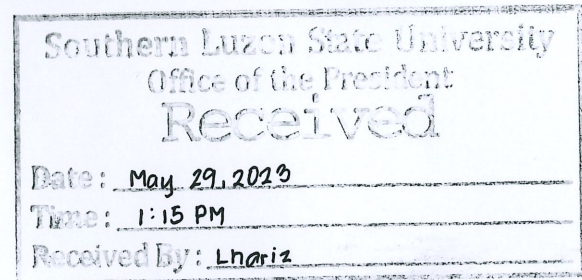 Southern Luzon State University
Office of the President
Received
Date: May 29, 2023
Time: 1:15 PM
Received By: Lhariz